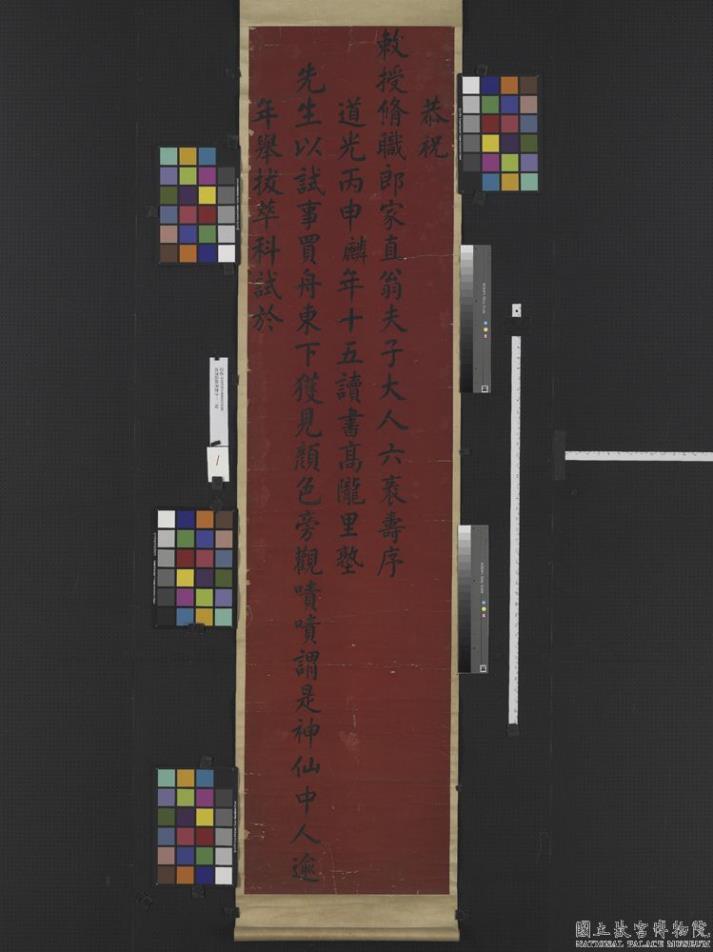 恭祝
敕授脩職郎家直翁夫子大人六袠壽序
道光丙申麟年十五讀書高隴里塾
先生以試事買舟東下獲見顏色旁觀嘖嘖謂是神仙中人逾
年舉拔萃科試於
國立故宮博物院
NATIONAL PALACE MUSEUM